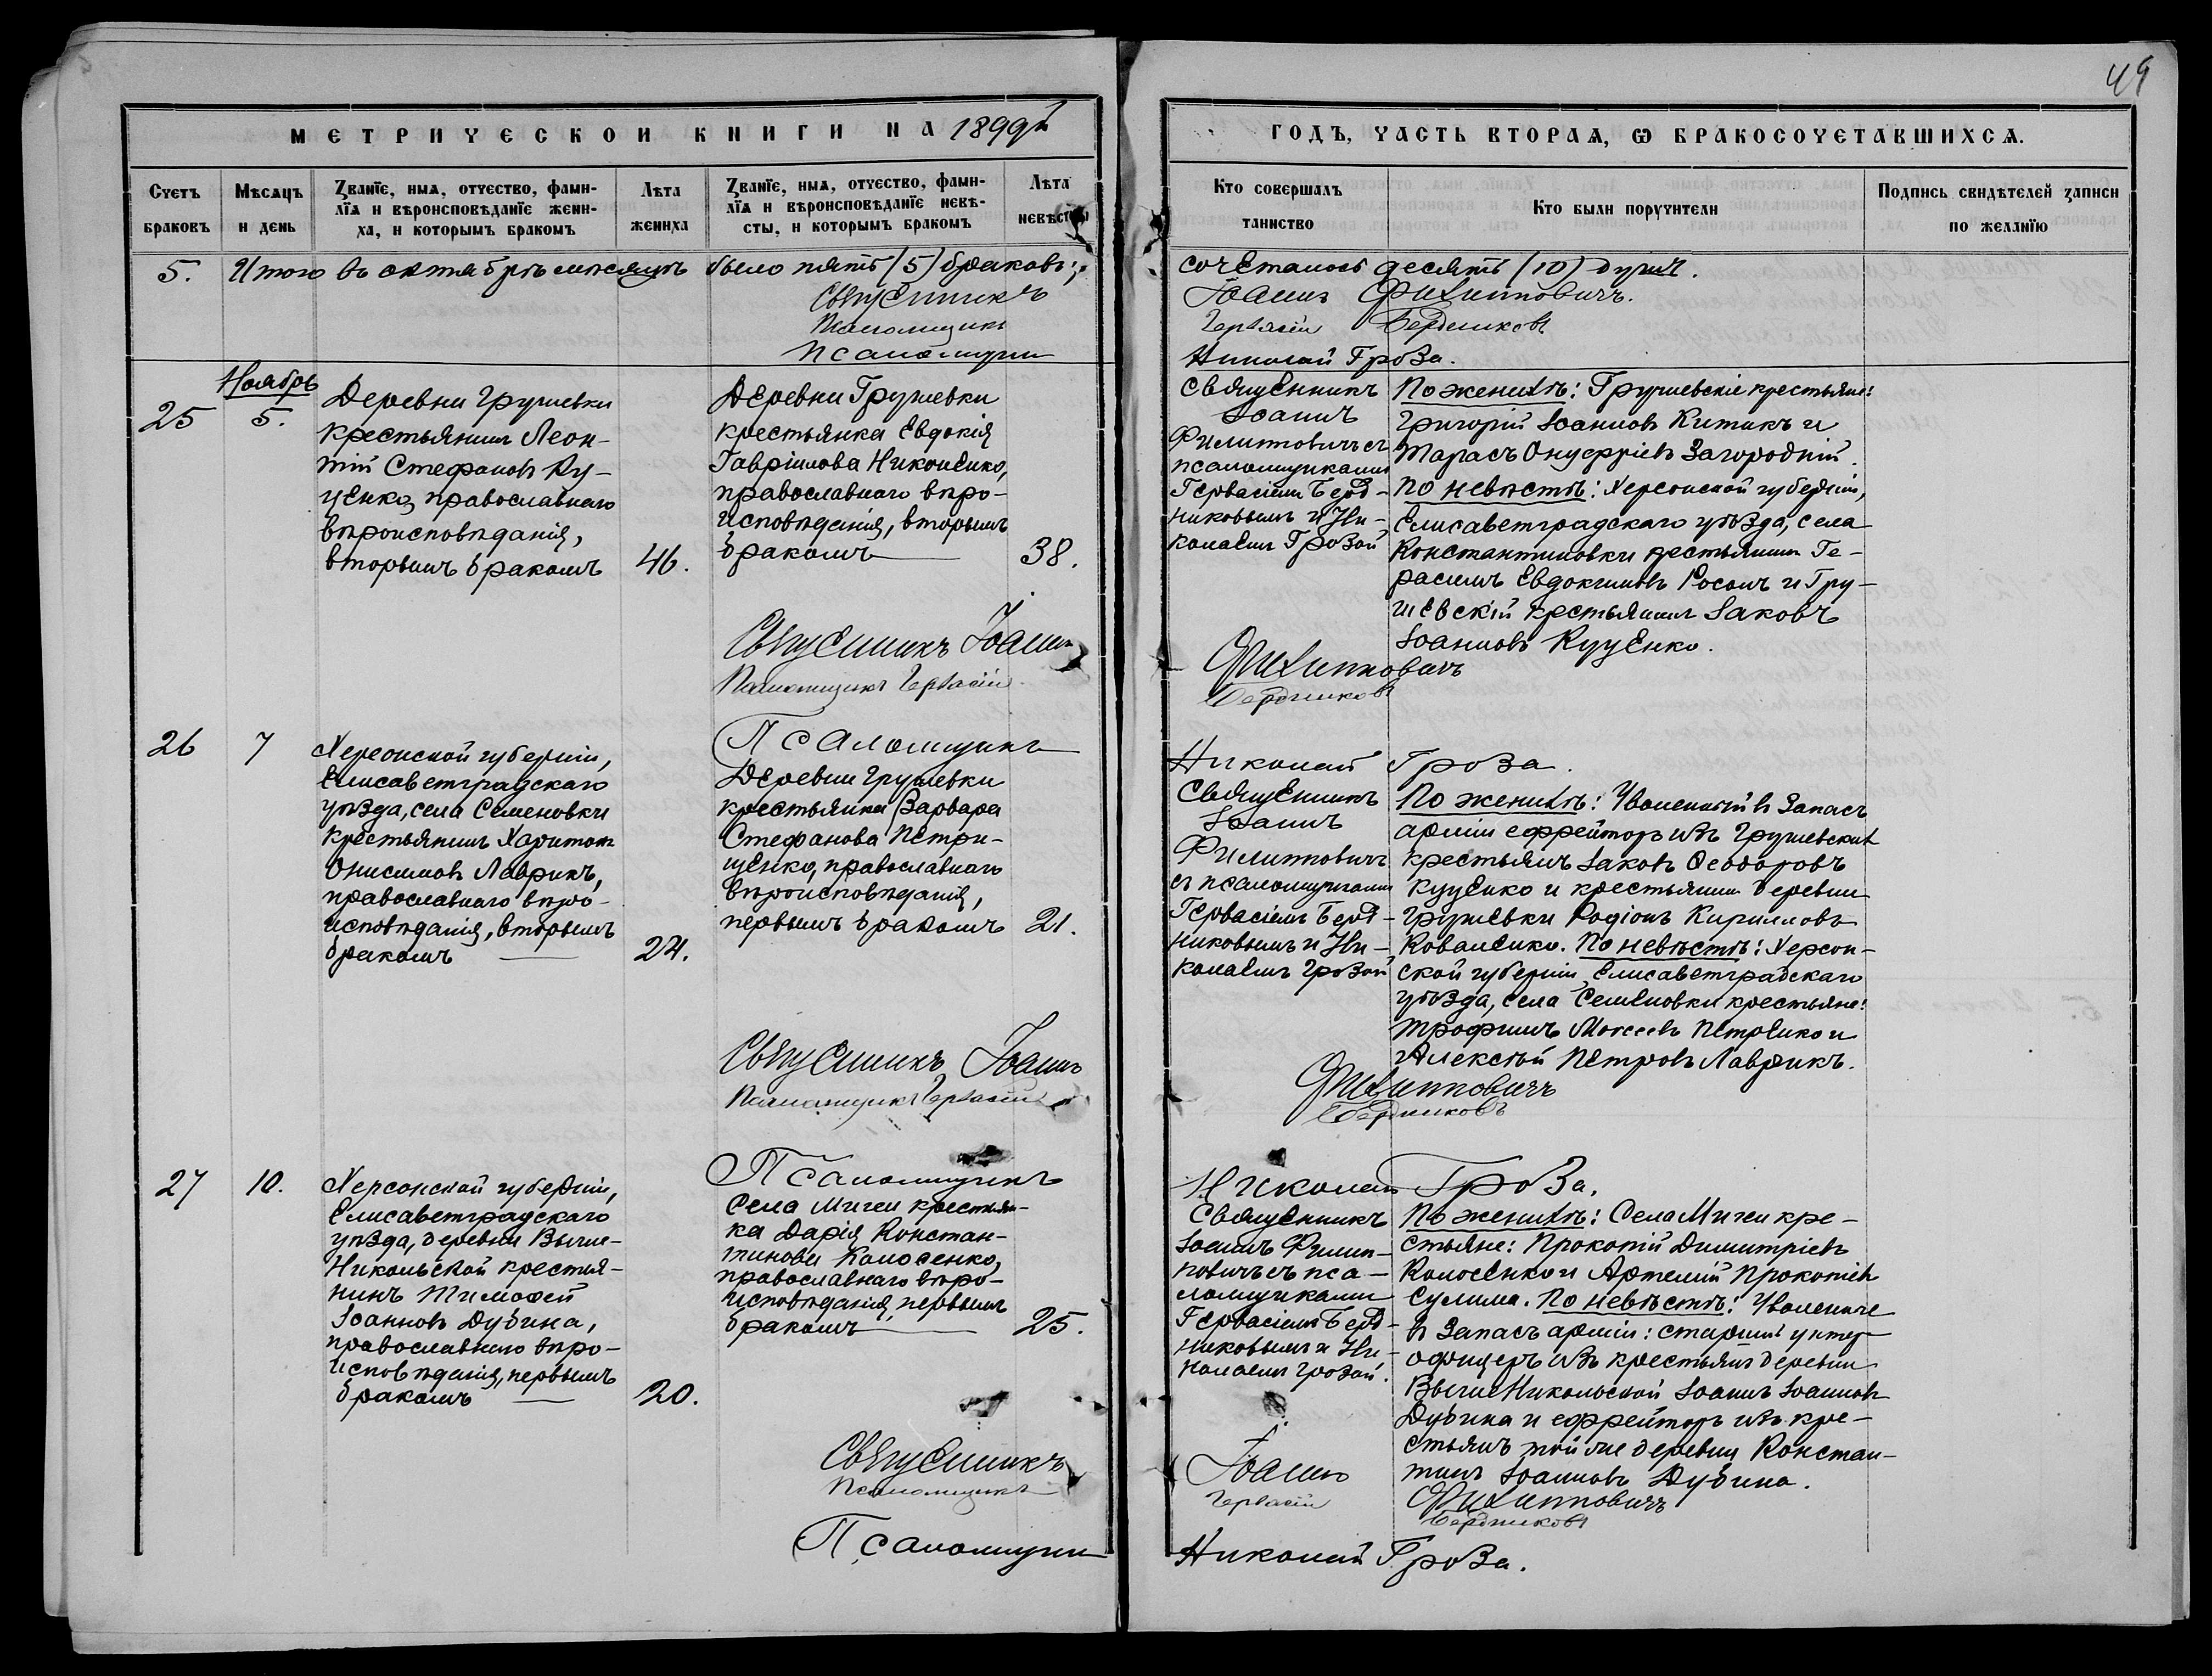 49
МЕТРИЧЕСКОЙ КНИГИ НА 1899й
ГОДЪ, ЧАСТЬ ВТОРАЯ, Ѡ БРАКОСОЧЕТАВШИХСЯ.
Счетъ браковъ
Мѣсяцъ и день
Званіе, имя, отчество, фами-
лія и вѣроисповѣданіе жени-
ха, и которымъ бракомъ
Лѣта жениха
Званіе, имя, отчество, фами-
лія и вѣроисповѣданіе невѣ-
сты, и которымъ бракомъ
Лѣта невѣсты
Кто совершалъ таинство
Кто были поручители
Подпись свидѣтелей записи по желанію
5. Итого въ октябрѣ мѣсяцѣ было пять (5) браковъ;
сочеталось десять (10) душъ.
Священникъ Іоаннъ Филипповичъ.
Псаломщикъ Гервасій Бердниковъ
Псаломщикъ Николай Гроза.
Ноябрь
25
5.
Деревни Грушевки
крестьянинъ Леон-
тій Стефановъ Ку-
ценко, православнаго
вѣроисповѣданія,
вторымъ бракомъ
46.
Деревни Грушевки
крестьянка Евдокія
Гавріилова Никоненко,
православнаго вѣро-
исповѣданія, вторымъ
бракомъ
38.
Священникъ
Іоаннъ
Филипповичъ съ
псаломщиками
Гервасіемъ Берд-
никовымъ и Ни-
колаемъ Грозой
По женихѣ: Грушевскіе крестьяне:
Григорій Іоанновъ Китикъ и
Тарасъ Онуфріевъ Загородній.
По невѣстѣ: Херсонской губерніи,
Елисаветградскаго уѣзда, села
Константиновки крестьянинъ Ге-
расимъ Евдокимовъ Росомъ и Гру-
шевскій крестьянинъ Іаковъ
Іоанновъ Куценко.
Священникъ Іоаннъ Филипповичъ
Псаломщикъ Гервасій Бердниковъ
Псаломщикъ Николай Гроза.
26
7
Херсонской губерніи,
Елисаветградскаго
уѣзда, села Семеновки
крестьянинъ Харитонъ
Онисимовъ Лаврикъ,
православнаго вѣро-
исповѣданія, вторымъ
бракомъ
24.
Деревни Грушевки
крестьянка Варвара
Стефанова Петри-
щенко, православнаго
вѣроисповѣданія,
первымъ бракомъ
21.
Священникъ
Іоаннъ
Филипповичъ
съ псаломщиками
Гервасіемъ Берд-
никовымъ и Ни-
колаемъ Грозой
По женихѣ: Уволенный въ запасъ
арміи ефрейторъ изъ Грушевскихъ
крестьянъ Іаковъ Ѳеодоровъ
Куценко и крестьянинъ деревни
Грушевки Родіонъ Кирилловъ
Коваленко. По невѣстѣ: Херсон-
ской губерніи, Елисаветградскаго
уѣзда, села Семеновки крестьяне:
Трофимъ Моисеевъ Петренко и
Алексѣй Петровъ Лаврикъ.
Священникъ Іоаннъ Филипповичъ
Псаломщикъ Гервасій Бердниковъ
Псаломщикъ Николай Гроза.
27
10.
Херсонской губерніи,
Елисаветградскаго
уѣзда, деревни Выше-
Никольской крестья-
нинъ Тимофей
Іоанновъ Дубина,
православнаго вѣро-
исповѣданія, первымъ
бракомъ
20.
Села Мигеи крестьян-
ка Дарія Констан-
тинова Колосенко,
православнаго вѣро-
исповѣданія, первымъ
бракомъ
25.
Священникъ
Іоаннъ Филип-
повичъ съ пса-
ломщиками
Гервасіемъ Берд-
никовымъ и Ни-
колаемъ Грозой.
По женихѣ: Села Мигеи кре-
стьяне: Прокопій Димитріевъ
Колосенко и Артемій Прокопіевъ
Сулима. По невѣстѣ: Уволенные
въ запасъ арміи: старшій унтер-
офицеръ изъ крестьянъ деревни
Выше Никольской Іоаннъ Іоанновъ
Дубина и ефрейторъ изъ кре-
стьянъ той же деревни Констан-
тинъ Іоанновъ Дубина.
Священникъ Іоаннъ Филипповичъ
Псаломщикъ Гервасій Бердниковъ
Псаломщикъ Николай Гроза.